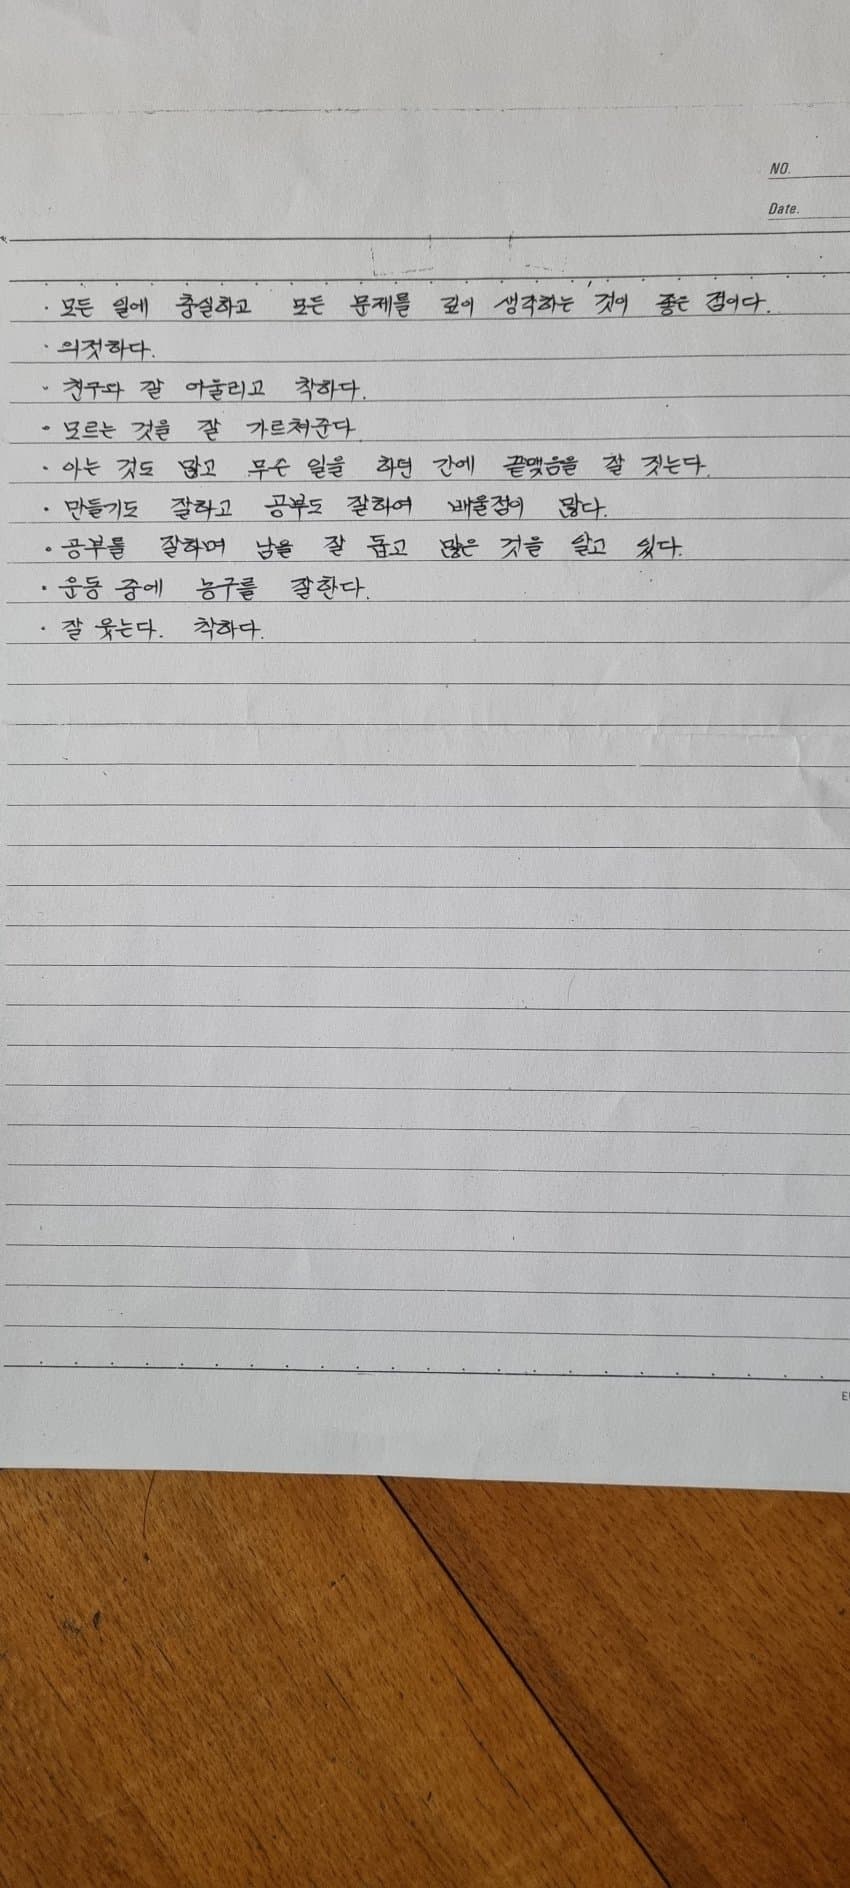 NO.
Date.
· 모든 일에 충실하고 모든 문제를 깊이 생각하는 것이 좋은 점이다.
· 의젓하다.
· 친구와 잘 어울리고 착하다.
· 모르는 것을 잘 가르쳐준다.
· 아는 것도 많고 무슨 일을 하던 간에 끝맺음을 잘 짓는다.
· 만들기도 잘하고 공부도 잘하여 배울점이 많다.
· 공부를 잘하며 남을 잘 돕고 많은 것을 알고 있다.
· 운동 중에 농구를 잘한다.
· 잘 웃는다. 착하다.